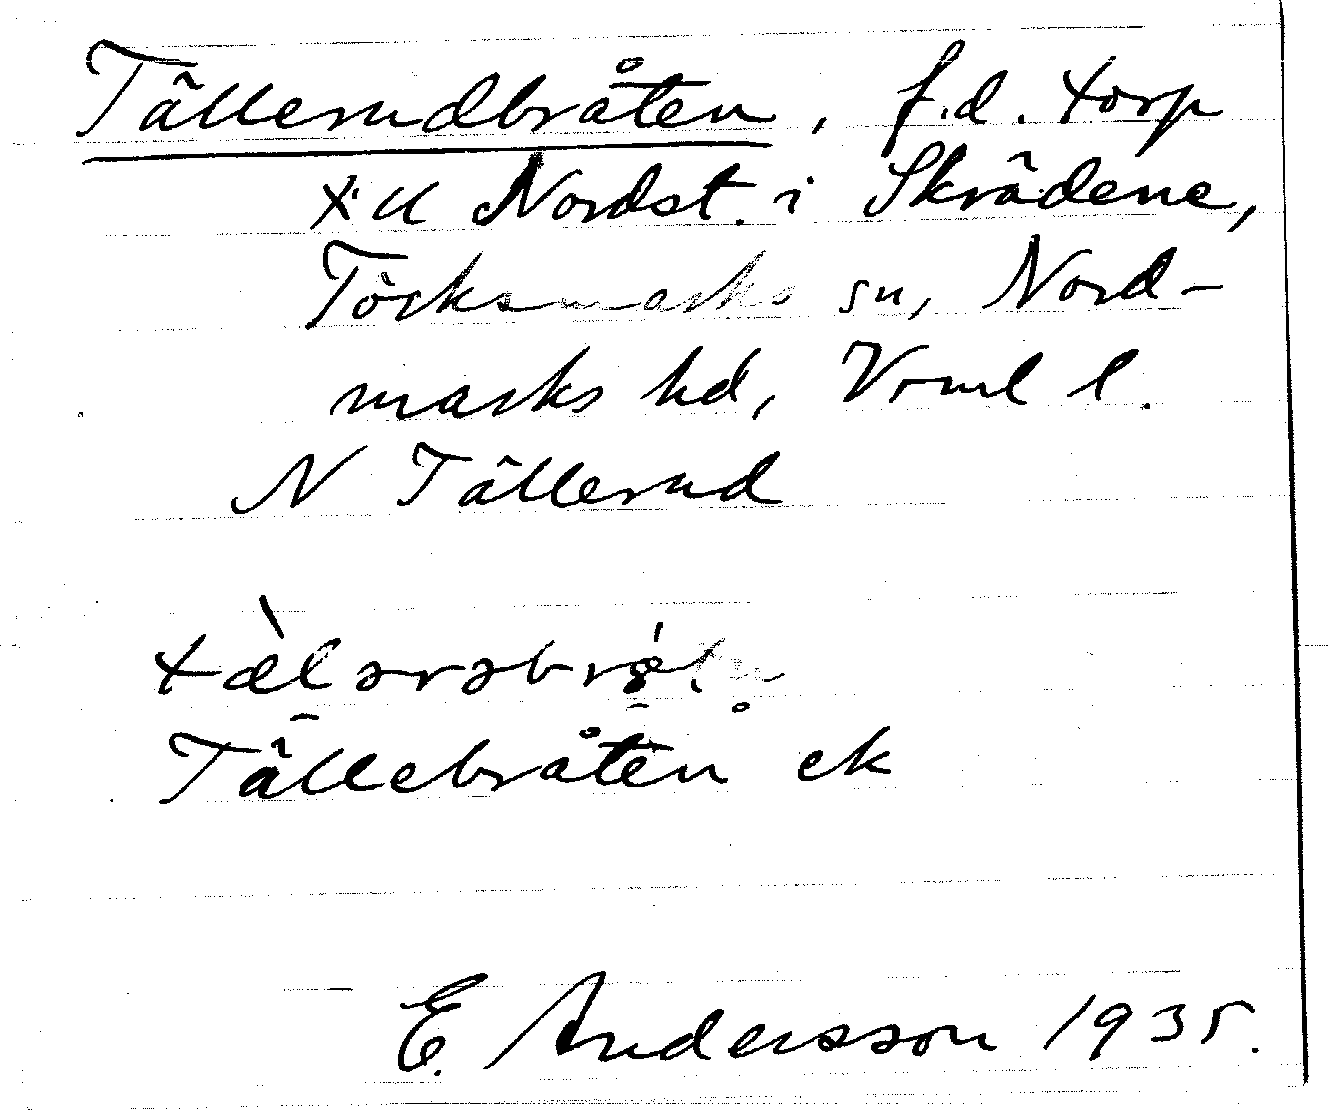 Tällerudbråten, f.d. torp
Nordst. i Skrädene,
Töcksmarks sn, Nord-
marks hd, Vrml l.
N Tällerud
Tällebråten ek
E. Andersson 1935.